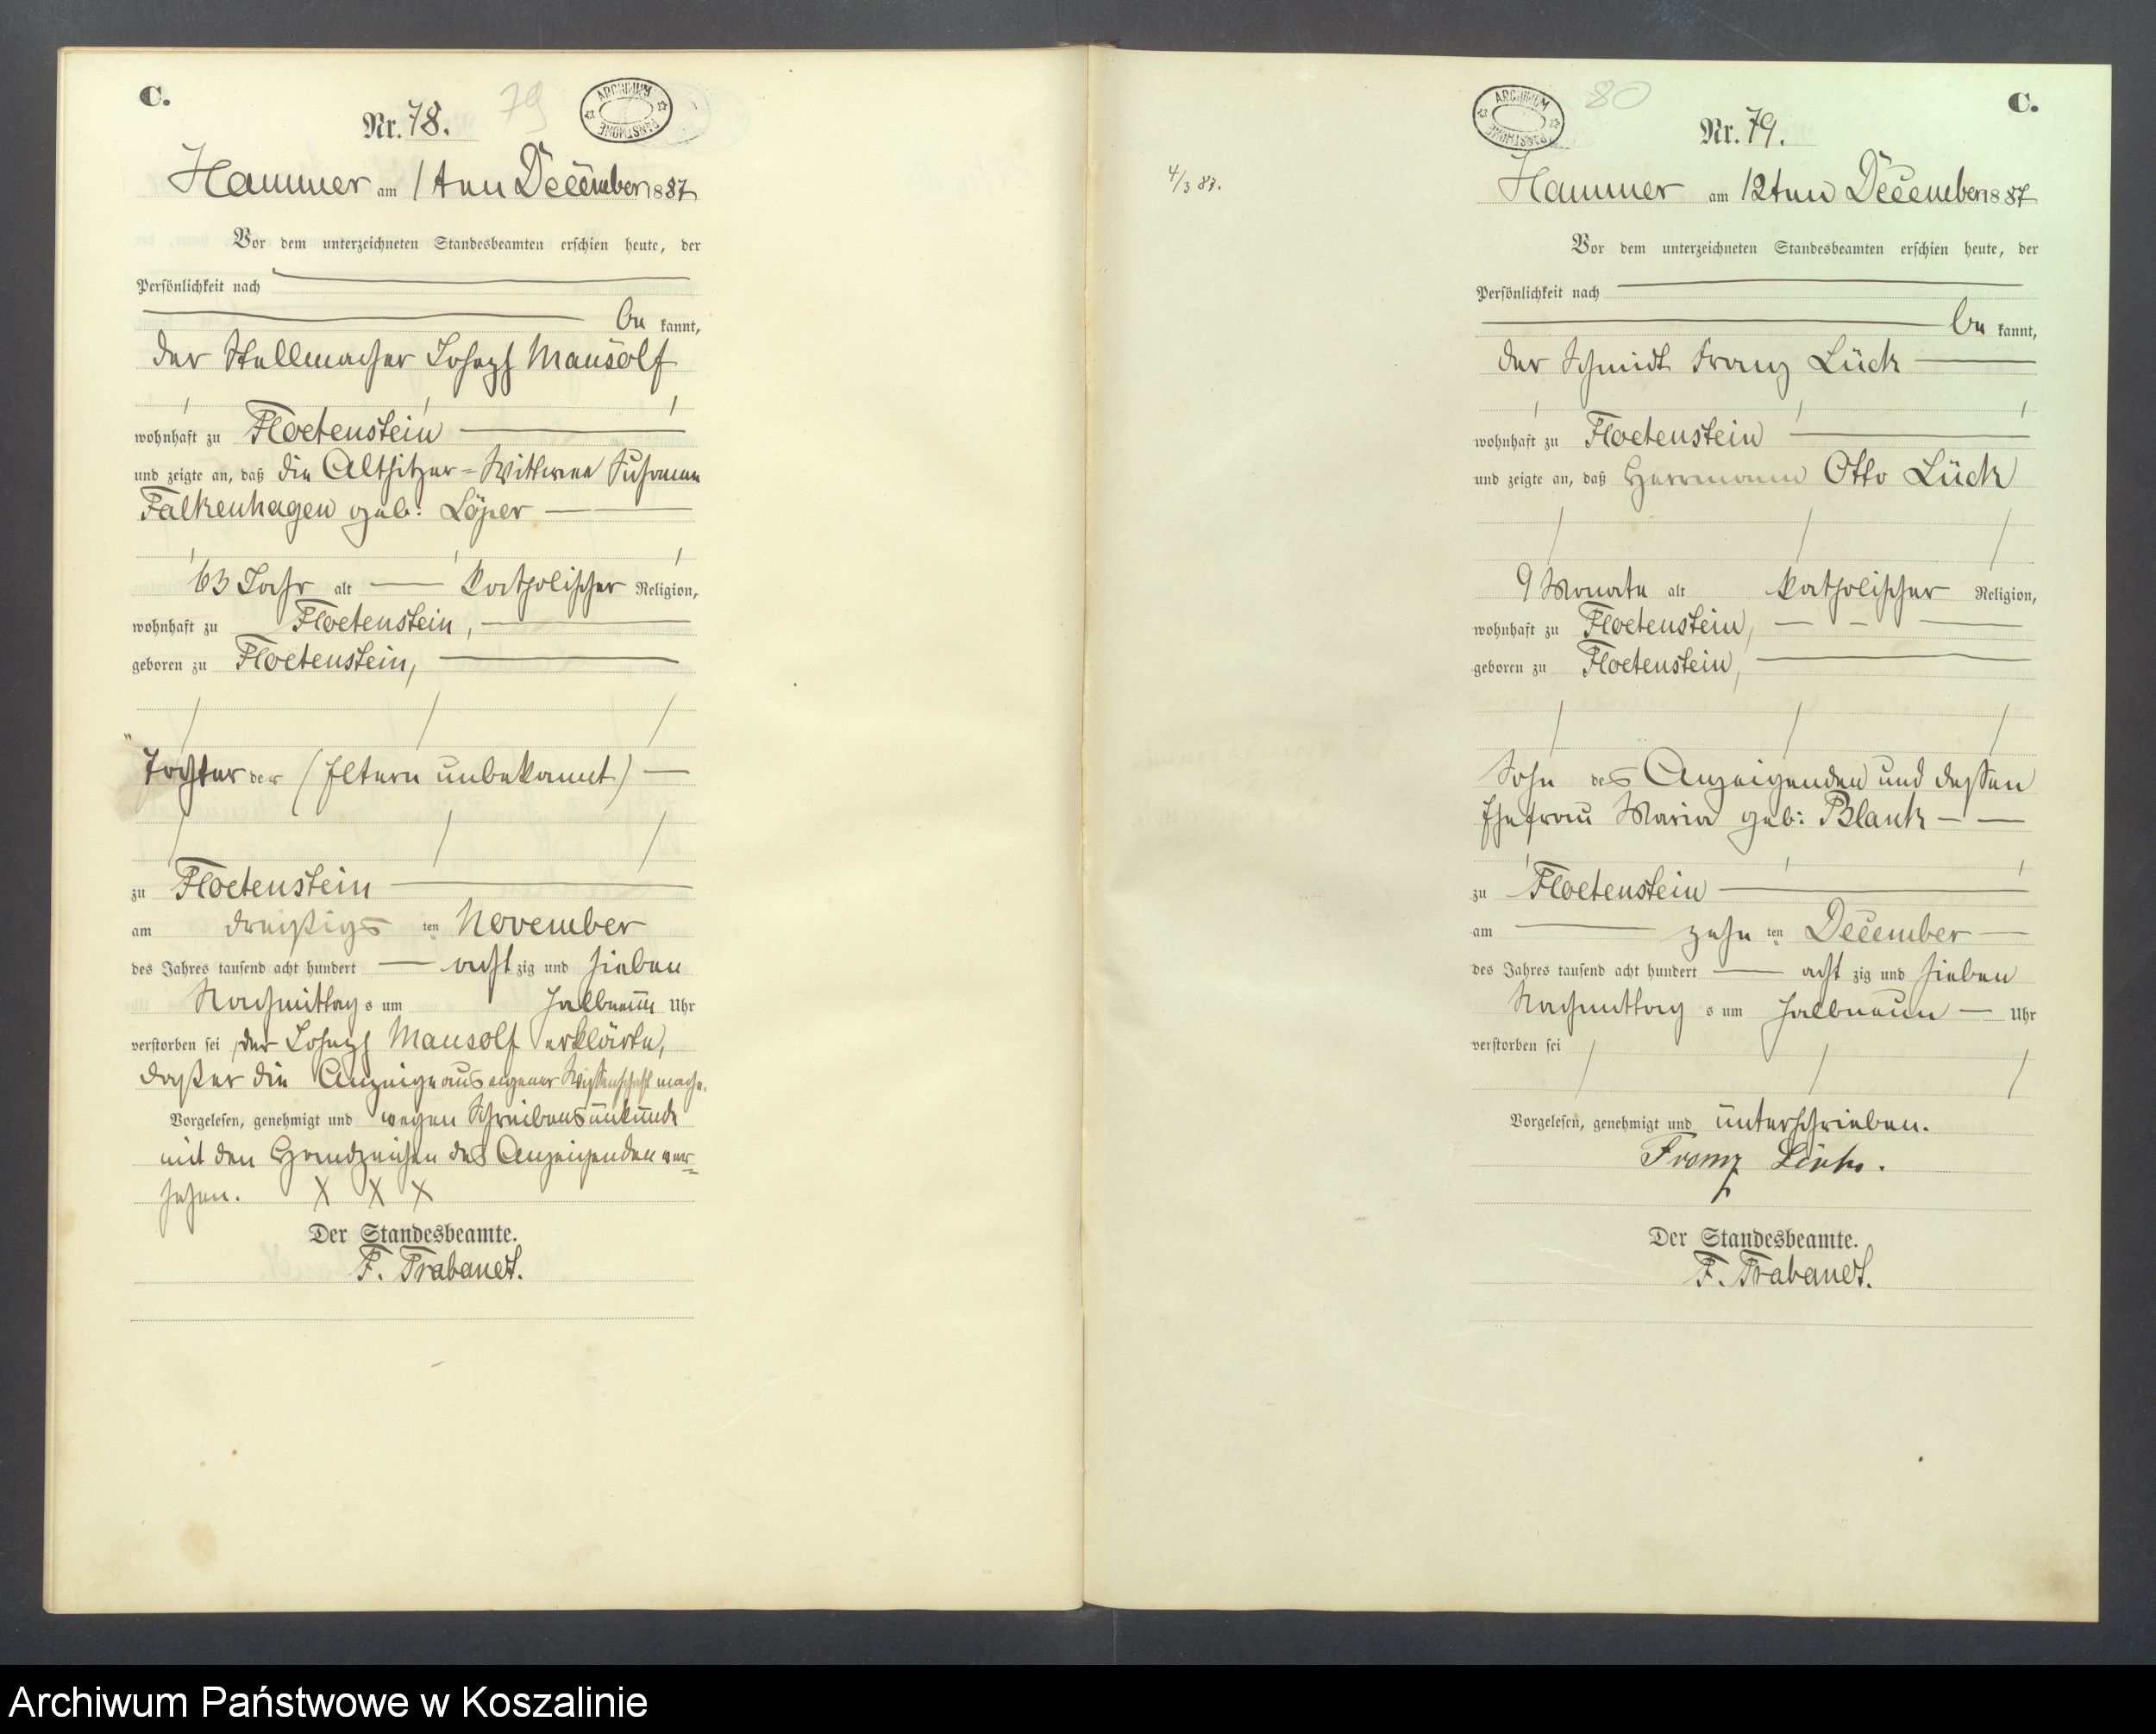 C.
Nr. 78.
79
ARCHIWUM PAŃSTWOWE
Hammer am 1ten December 1887
Vor dem unterzeichneten Standesbeamten erschien heute, der
Persönlichkeit nach
be kannt,
der Stellmacher Joseph Mausolf
wohnhaft zu Floetenstein
und zeigte an, daß die Altsitzer-Wittwee Susanna
Falkenhagen geb: Löper
63 Jahr alt katholischer Religion,
wohnhaft zu Floetenstein,
geboren zu Floetenstein,
Tochter der (Eltern unbekannt)
zu Floetenstein
am dreißigs ten November
des Jahres tausend acht hundert acht zig und sieben
Nachmittag s um halbneun Uhr
verstorben sei, der Joseph Mausolf erklärte,
daß er die Anzeige aus eigener Wissenschaft mache.
Vorgelesen, genehmigt und wegen Schreibensunkunde
mit den Handzeichen des Anzeigenden ver=
sehen. X X X
Der Standesbeamte.
F. Trabandt.
4/3 87.
C.
Nr. 79.
80
ARCHIWUM PAŃSTWOWE
Hammer am 12ten December 1887
Vor dem unterzeichneten Standesbeamten erschien heute, der
Persönlichkeit nach
be kannt,
der Schmidt Franz Lück
wohnhaft zu Floetenstein
und zeigte an, daß Herrmann Otto Lück
9 Monate alt katholischer Religion,
wohnhaft zu Floetenstein,
geboren zu Floetenstein,
Sohn des Anzeigenden und dessen
Ehefrau Maria geb: Blank
zu Floetenstein
am zehn ten December
des Jahres tausend acht hundert acht zig und sieben
Nachmittag s um halbneun Uhr
verstorben sei
Vorgelesen, genehmigt und unterschrieben.
Franz Lück.
Der Standesbeamte.
F. Trabandt.
Archiwum Państwowe w Koszalinie